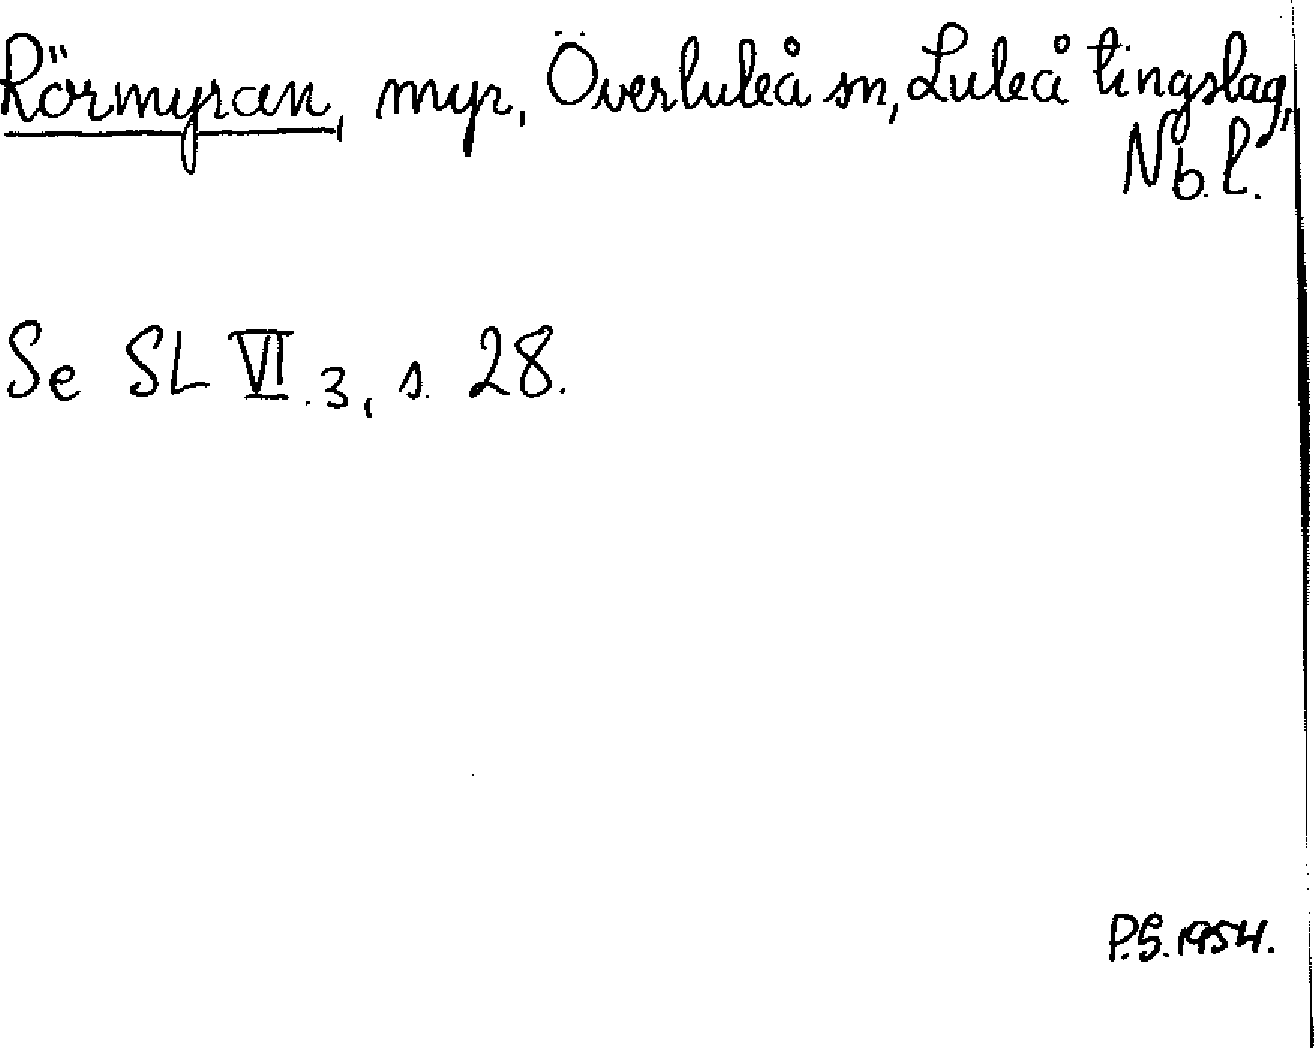 Rörmyran, myr, Överluleå sn, Luleå tingslag,
Nb. l.
Se SL VI.3, s. 28.
P.S. 1954.